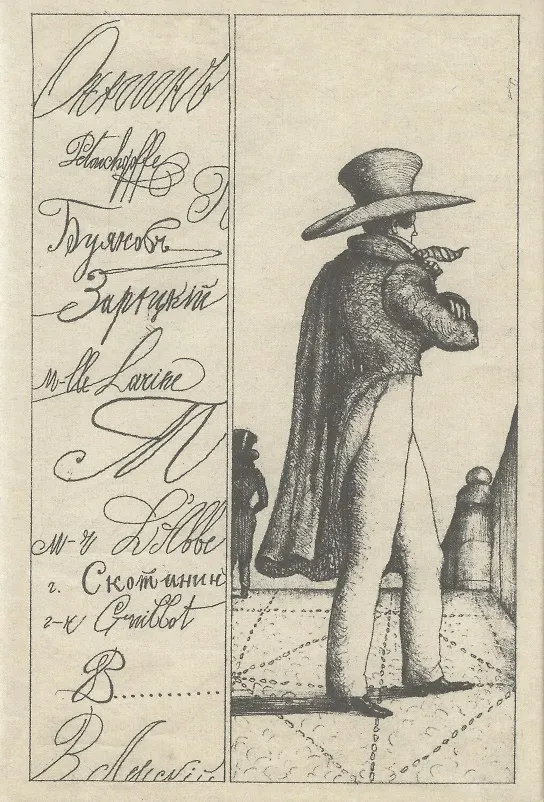 Онѣгинъ
П
Буяновъ
Зарѣцкій
м-lle Larine
П
м-r L'Abbe
г. Скотинин
г-н Guillot
В...............
В Ленскій